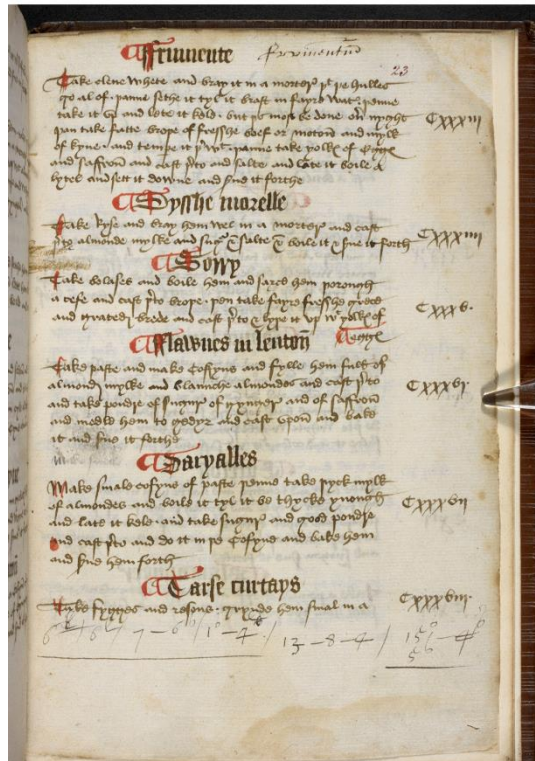 ffrumente ffrumentum
23
Take clene whete and bray it in a morter þt þe hulles
go al of · þanne sethe it tyl it brest in fayre watr · þanne
take it up and lete it kele · but þis most be done on nyght
þan take fatte broþe of fressche beef or moton and mylk
of kyne · and tempe it þrwt · þanne take yolkes of Eyryn
and saffron and cast þrto and salte and late it boile a
lytel and sett it downe and srue it forthe
Cxxxiii
Dyssche mezelle
Take Ryse and bray hem wel in a morter and cast
þrto almonde mylke and sugr & salte & boile it & srue it forth
Cxxxiiii
Bowy
Take bolases and boile hem and sarce hem þorough
a cese and cast þrto broþe · þen take fayre fressche grece
and grated brede and cast þrto & lype it up wt yolkes of
eyryn
Cxxxv ·
fflawnes in lenton
Take paste and make cofyns and fylle hem full of
almond mylke and blannche almondes and cast þrto
and take poudre of sugur of gynger and of saffron
and medle hem to gedyr and cast upon and bake
it and srue it forthe
Cxxxvi
Daryalles
Make smale cofyns of paste þenne take þyck mylk
of almondes and boile it tyl it be thycke ynough
and late it kele · and take sugur and good poudre
and cast þrto and do it in þe cofyns and bake hem
and srue hem forth
Cxxxvii
Tarse curtays
Take fygges and resons · grynde hem smal in a
Cxxxviii ·
13 – 8 – 4